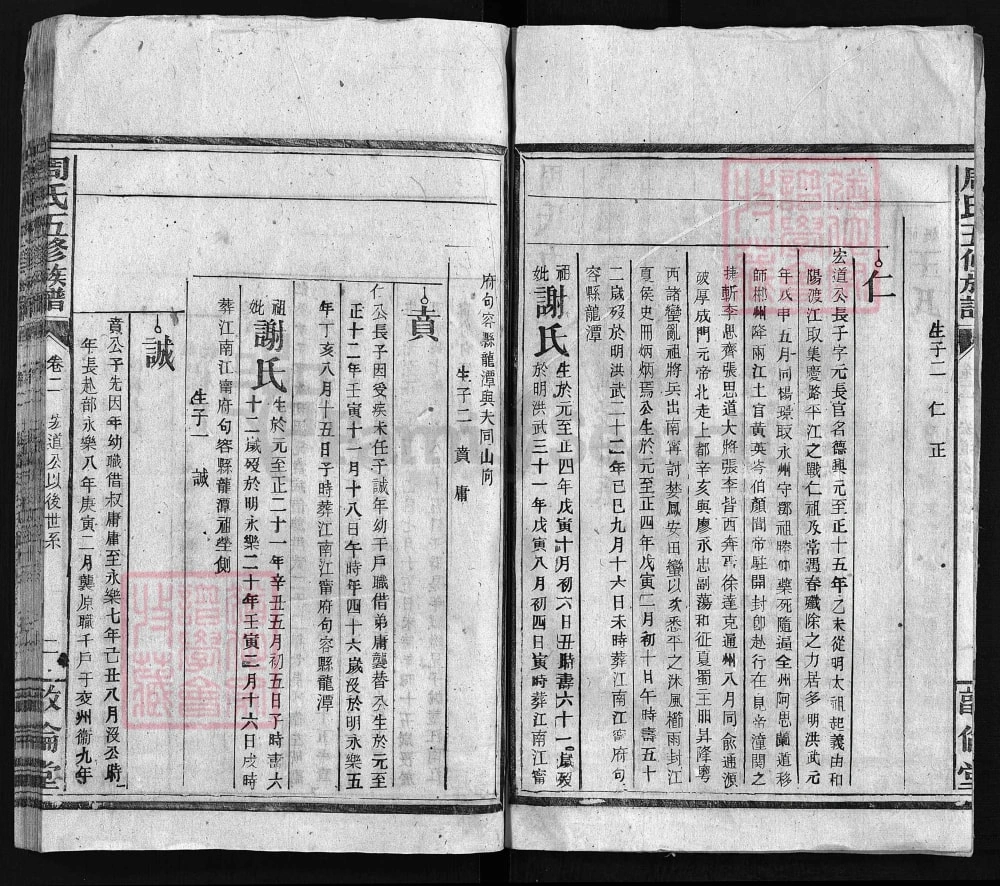 生子二 仁 正
仁
宏道公長子字元長官名德興元至正十五年乙未從明太祖起義由和
陽渡江取集慶路平江之戰仁祖及常遇春殲除之力居多明洪武元
年戊申五月同楊璟取永州守鄧祖勝仰藥死隨逼全州阿思蘭道移
師郴州降兩江土官黃英岑伯顏聞帝駐開封卽赴行在見帝潼關之
捷斬李思齊張思道大將張李皆西奔吉徐達克通州八月同俞通源
破厚成門元帝北走上都辛亥與廖永忠副蕩和征夏蜀王明昇降粵
西諸蠻亂祖將兵出南寧討婪鳳安田蠻以次悉平之沐風櫛雨封江
夏侯史冊炳炳焉公生於元至正四年戊寅二月初十日午時壽五十
二歲歿於明洪武二十二年己巳九月十六日未時葬江南江甯府句
容縣龍潭
祖妣謝氏生於元至正四年戊寅十月初六日丑時壽六十一歲歿
於明洪武三十一年戊寅八月初四日寅時葬江南江甯
府句容縣龍潭與夫同山向
生子二 賁 庸
賁
仁公長子因受疾未任子誠年幼干戶職借弟庸襲替公生於元至
正十二年壬寅十一月十八日午時年四十六歲没於明永樂五
年丁亥八月十五日子時葬江南江甯府句容縣龍潭
祖妣謝氏生於元至正二十一年辛丑五月初五日子時壽六
十二歲歿於明永樂二十年壬寅二月十六日戌時
葬江南江甯府句容縣龍潭祖塋側
生子一 誠
誠
賁公子先因年幼職借叔庸庸至永樂七年亡丑八月没公時
年長赴部永樂八年庚寅二月襲原職千戶于夔州衞九年
周氏五修族譜
卷二 宏道公以後世系
二
敦倫堂